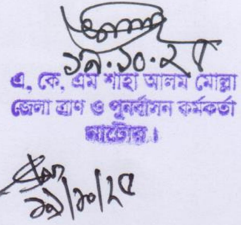 ১৯.১০.২৫
এ, কে, এম শাহা আলম মোল্লা
জেলা ত্রাণ ও পুনর্বাসন কর্মকর্তা
নাটোর।
১৯/১০/২৫